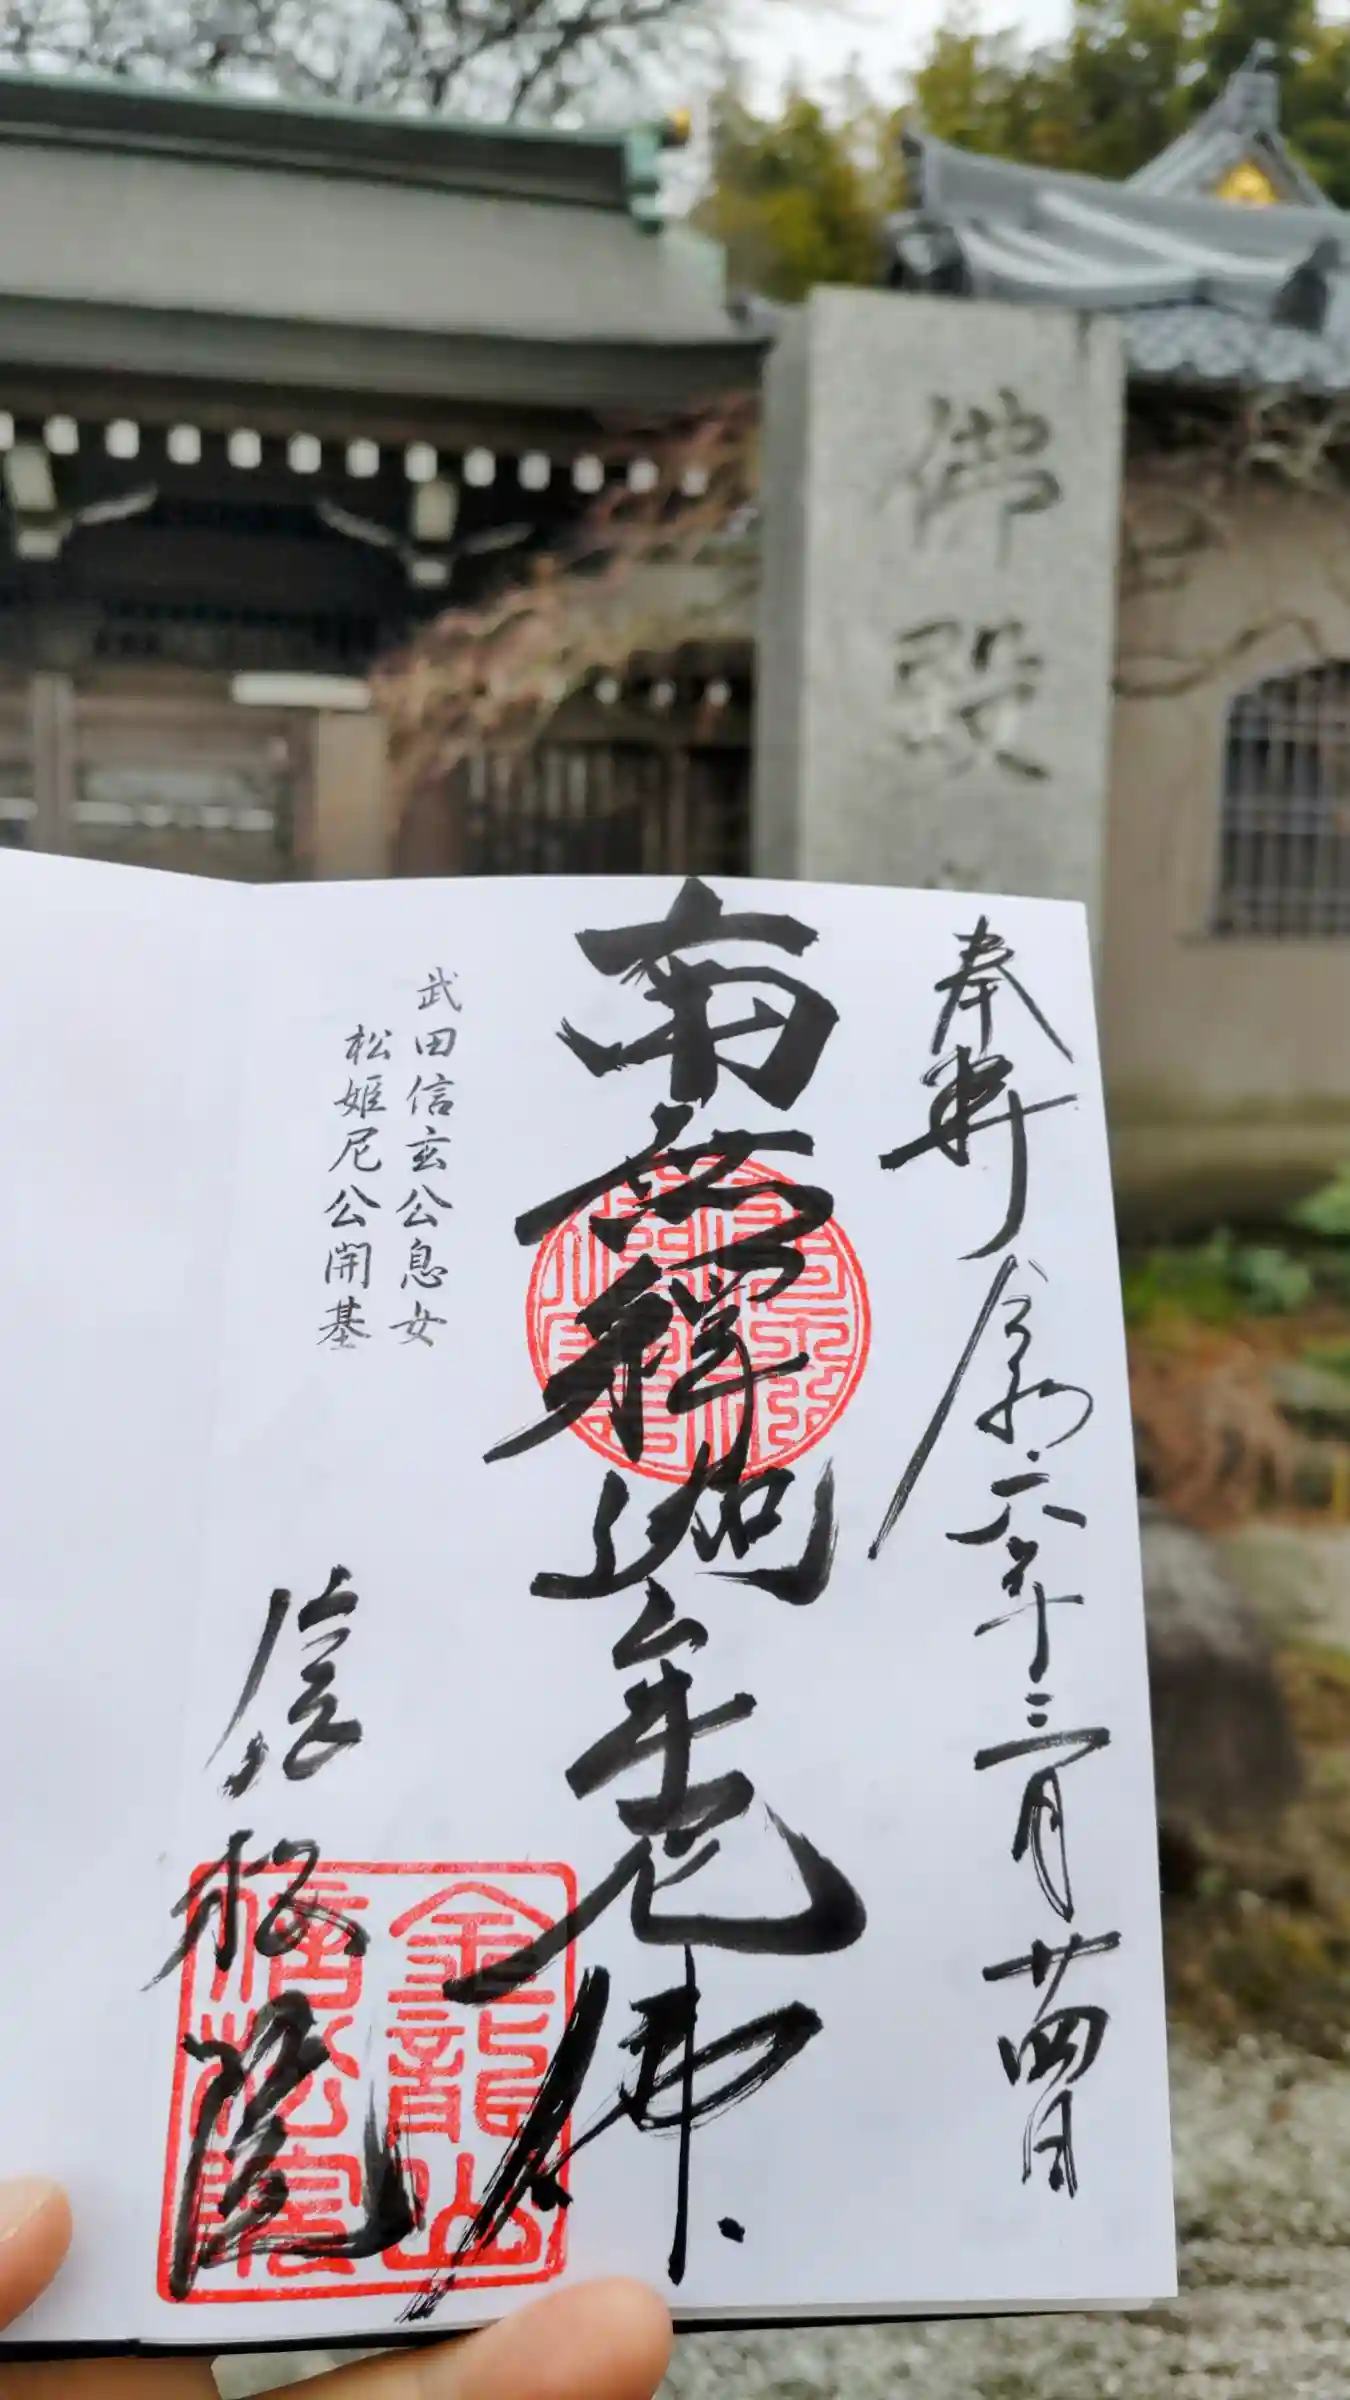 佛殿
奉拝 令和六年三月廿四日
南無釋迦牟尼仏
武田信玄公息女
松姫尼公開基
信松院
金龍山
信松院